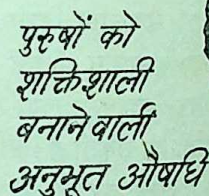 पुरुषों को
शक्तिशाली
बनाने वाली
अनुभूत औषधि